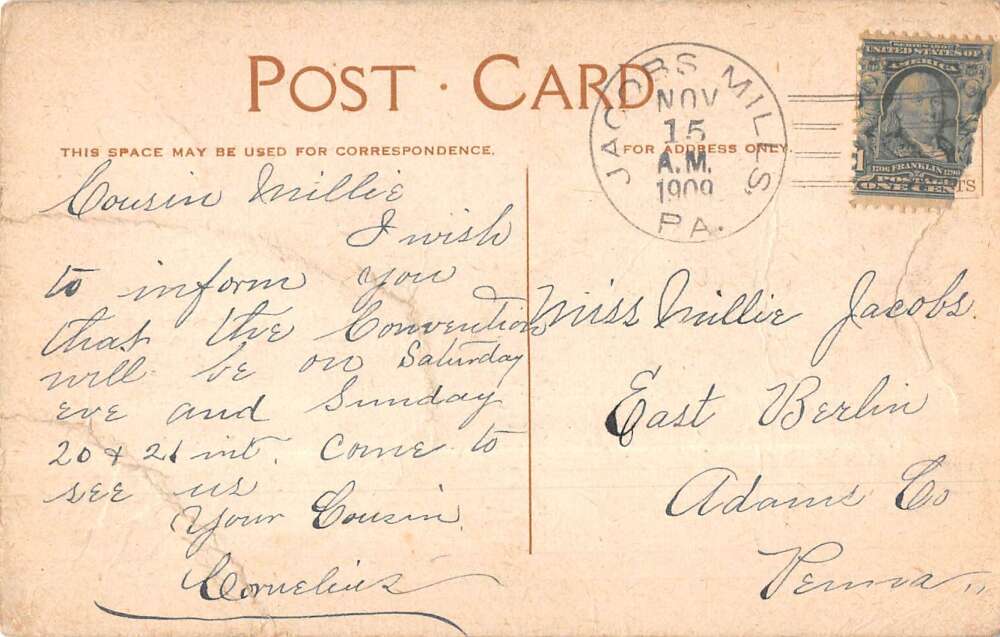 POST CARD
THIS SPACE MAY BE USED FOR CORRESPONDENCE.
FOR ADDRESS ONLY.
JACOBS MILLS.
NOV
15
A.M.
1909
PA.
UNITED STATES OF
AMERICA
1706 FRANKLIN 1790
POSTAGE
ONE CENT
1
TS
Cousin Millie
I wish
to inform you
that the Convention
will be on Saturday
eve and Sunday
20 + 21 int. Come to
see us
Your Cousin,
Cornelius
Miss Millie Jacobs.
East Berlin
Adams Co
Penna,,